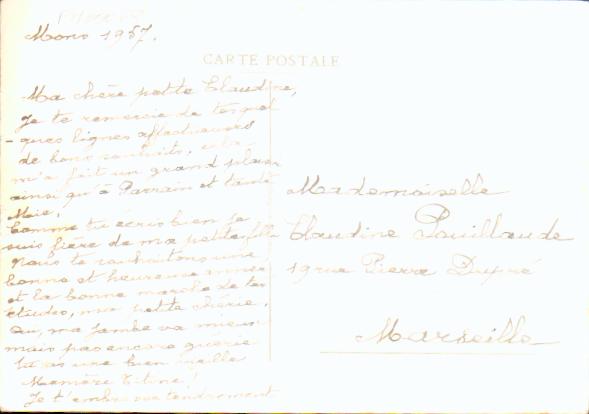 Mons 1957.
CARTE POSTALE
Ma chère petite Claudine,
Je te remercie de tes quel
-ques lignes affectueuses
de bons souhaits, cela
m'a fait un grand plaisir
ainsi qu'à Parrain et tante
Comme tu écris bien je
suis fière de ma petite fille
nous te souhaitons une
bonne et heureuse année
et la bonne marche de tes
études, ma petite chérie.
ma jambe va mieux
mais pas encore guérie
tu as une bien vieille
Je t'embrasse tendrement
Mademoiselle
Claudine Pouillaude
19 rue Pierre Dupré
Marseille